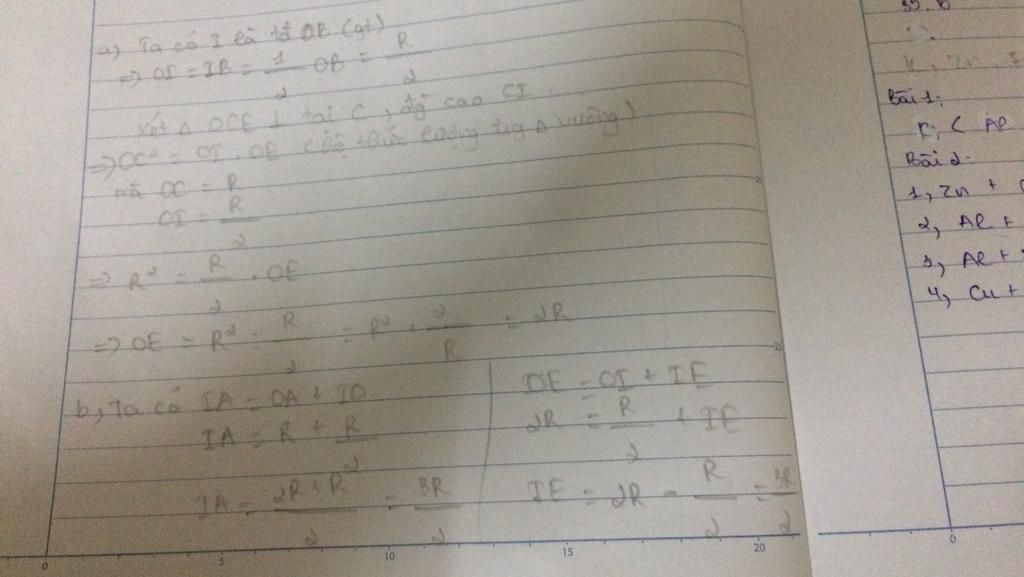 a) Ta có I là tđ OB (gt)
=> OI = IB = 1/2 OB = R/2
Xét Δ OCE ⊥ tại C, đg cao CI
=> OC² = OI . OE (hệ thức lượng trg Δ vuông)
mà OC = R
OI = R/2
=> R² = R/2 . OE
=> OE = R² : R/2 = R² . 2/R = 2R
b, Ta có IA = OA + IO
IA = R + R/2
IA = 2R + R/2 = 3R/2
OE = OI + IE
2R = R/2 + IE
IE = 2R - R/2 = 3R/2
K, Zn,
Bài 1:
K, C Al
Bài 2:
1, Zn +
2, Al +
3, Al +
4, Cu +
0 5 10 15 20
0